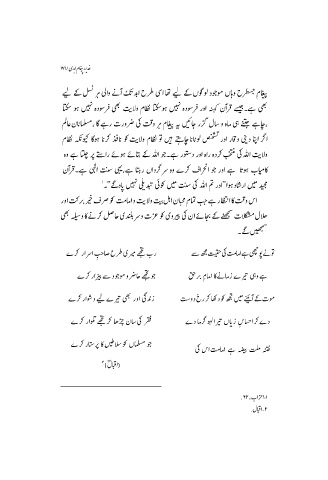 غدیر، پیغام ابدی / ۲۷۱
پیغام جسطرح وہاں موجود لوگوں کے لیے تھا اسی طرح ابد تک آنے والی ہر نسل کے لیے
بھی ہے۔ جیسے قرآن کہنہ اور فرسودہ نہیں ہو سکتا نظام ولایت بھی فرسودہ نہیں ہو سکتا
،چاہے جتنے ہی ماہ و سال گزر جائیں یہ پیغام ہر وقت کی ضرورت رہے گا، مسلمانان عالم
اگر اپنا دینی وقار اور تشخص لوٹانا چاہتے ہیں تو نظام ولایت کو نافذ کرنا ہوگا کیونکہ نظام
ولایت اللہ کی منتخب کردہ راہ اور دستور ہے۔ جو اللہ کے بتائے ہوئے راستے پر چلتا ہے وہ
کامیاب ہوتا ہے اور جو انحراف کرے وہ سرگرداں رہتا ہے، یہی سنت الٰہی ہے۔ قرآن
مجید میں ارشاد ہوا ”اور تم اللہ کی سنت میں کوئی تبدیلی نہیں پاؤ گے“۔ ۱
اس وقت کا انتظار ہے جب تمام محبان اہل بیت ولایت و امامت کو صرف خیر و برکت اور
حلال مشکلات سمجھنے کے بجائے ان کی پیروی کو عزت و سربلندی حاصل کرنے کا وسیلہ بھی
سمجھیں گے۔
تو نے پوچھی ہے امامت کی حقیقت مجھ سے رب تجھے میری طرح صاحب اسرار کرے
ہے وہی تیرے زمانے کا امام بر حق جو تجھے حاضر و موجود سے بیزار کرے
موت کے آئینے میں تجھ کو دکھا کر رخ دوست زندگی اور بھی تیرے لیے دشوار کرے
دے کر احساس زیاں تیرا لہو گرما دے فقر کی سان چڑھا کر تجھے تلوار کرے
فتنہ ملت بیضہ ہے امامت اس کی جو مسلماں کو سلاطیں کا پرستار کرے
(اقبالؒ) ۲
۱۔ احزاب، ۶۲۔
۲۔ اقبال۔